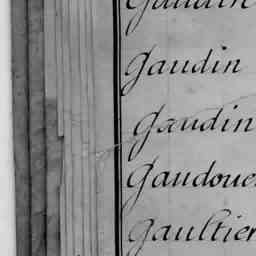 Gaudin
Gaudin
Gaudin
Gaudoue
Gaultier